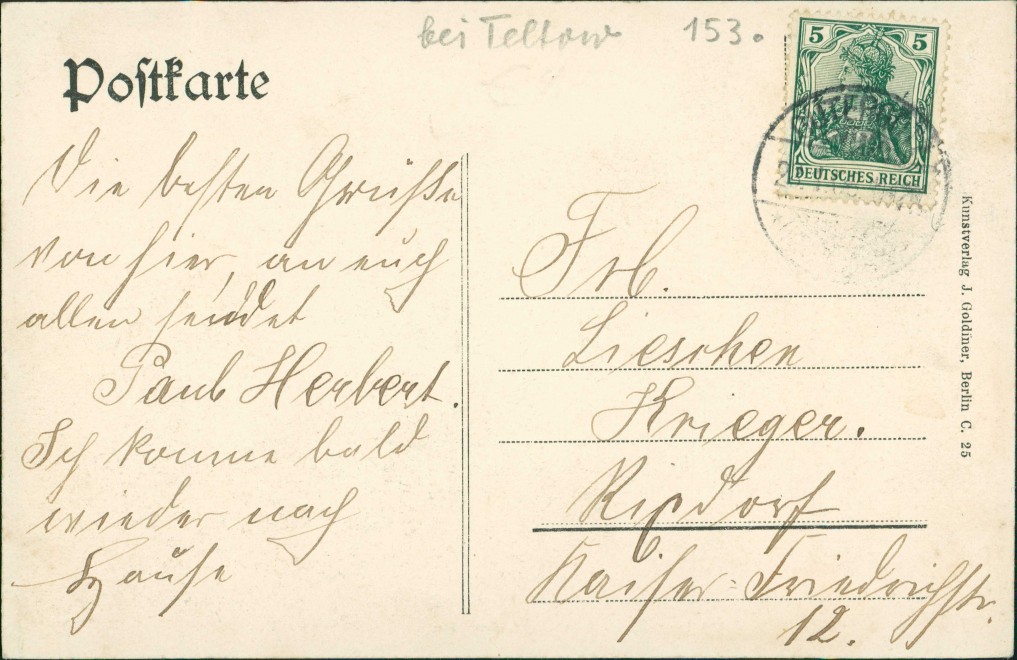 bei Teltow 153.
Postkarte
5 5
DEUTSCHES REICH
Die besten Grüße
von hier, an euch
allen sendet
Paul Herbert.
Ich komme bald
wieder nach
Hause
Frl.
Lieschen
Krieger.
Rixdorf
Kaiser-Friedrichstr.
12.
Kunstverlag J. Goldiner, Berlin C. 25